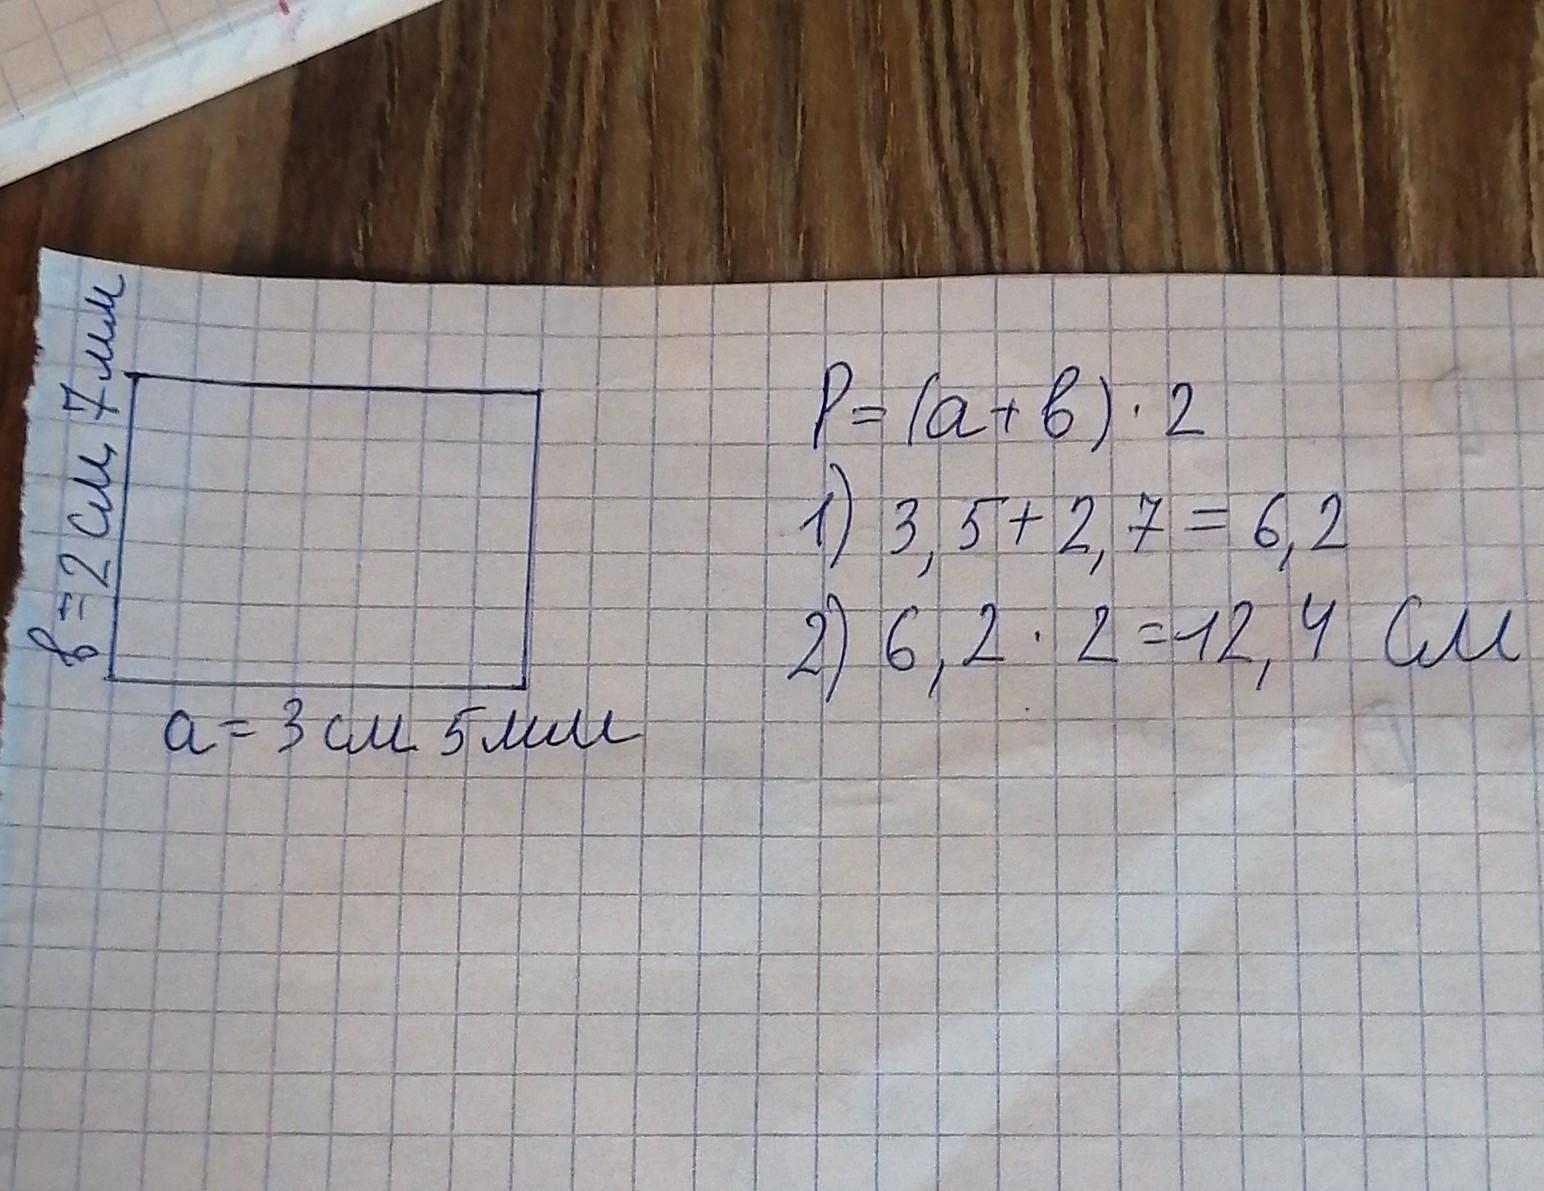 в = 2 см 7 мм
a = 3 см 5 мм
P = (a + в) · 2
1) 3,5 + 2,7 = 6,2
2) 6,2 · 2 = 12,4 см